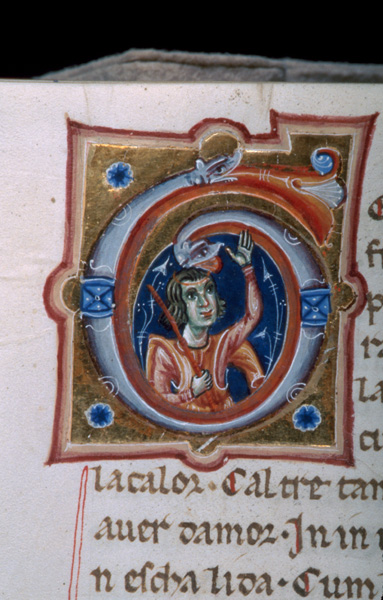 G
lacalor. Caltre tan
auer damor. In in
n eschalida. Cum